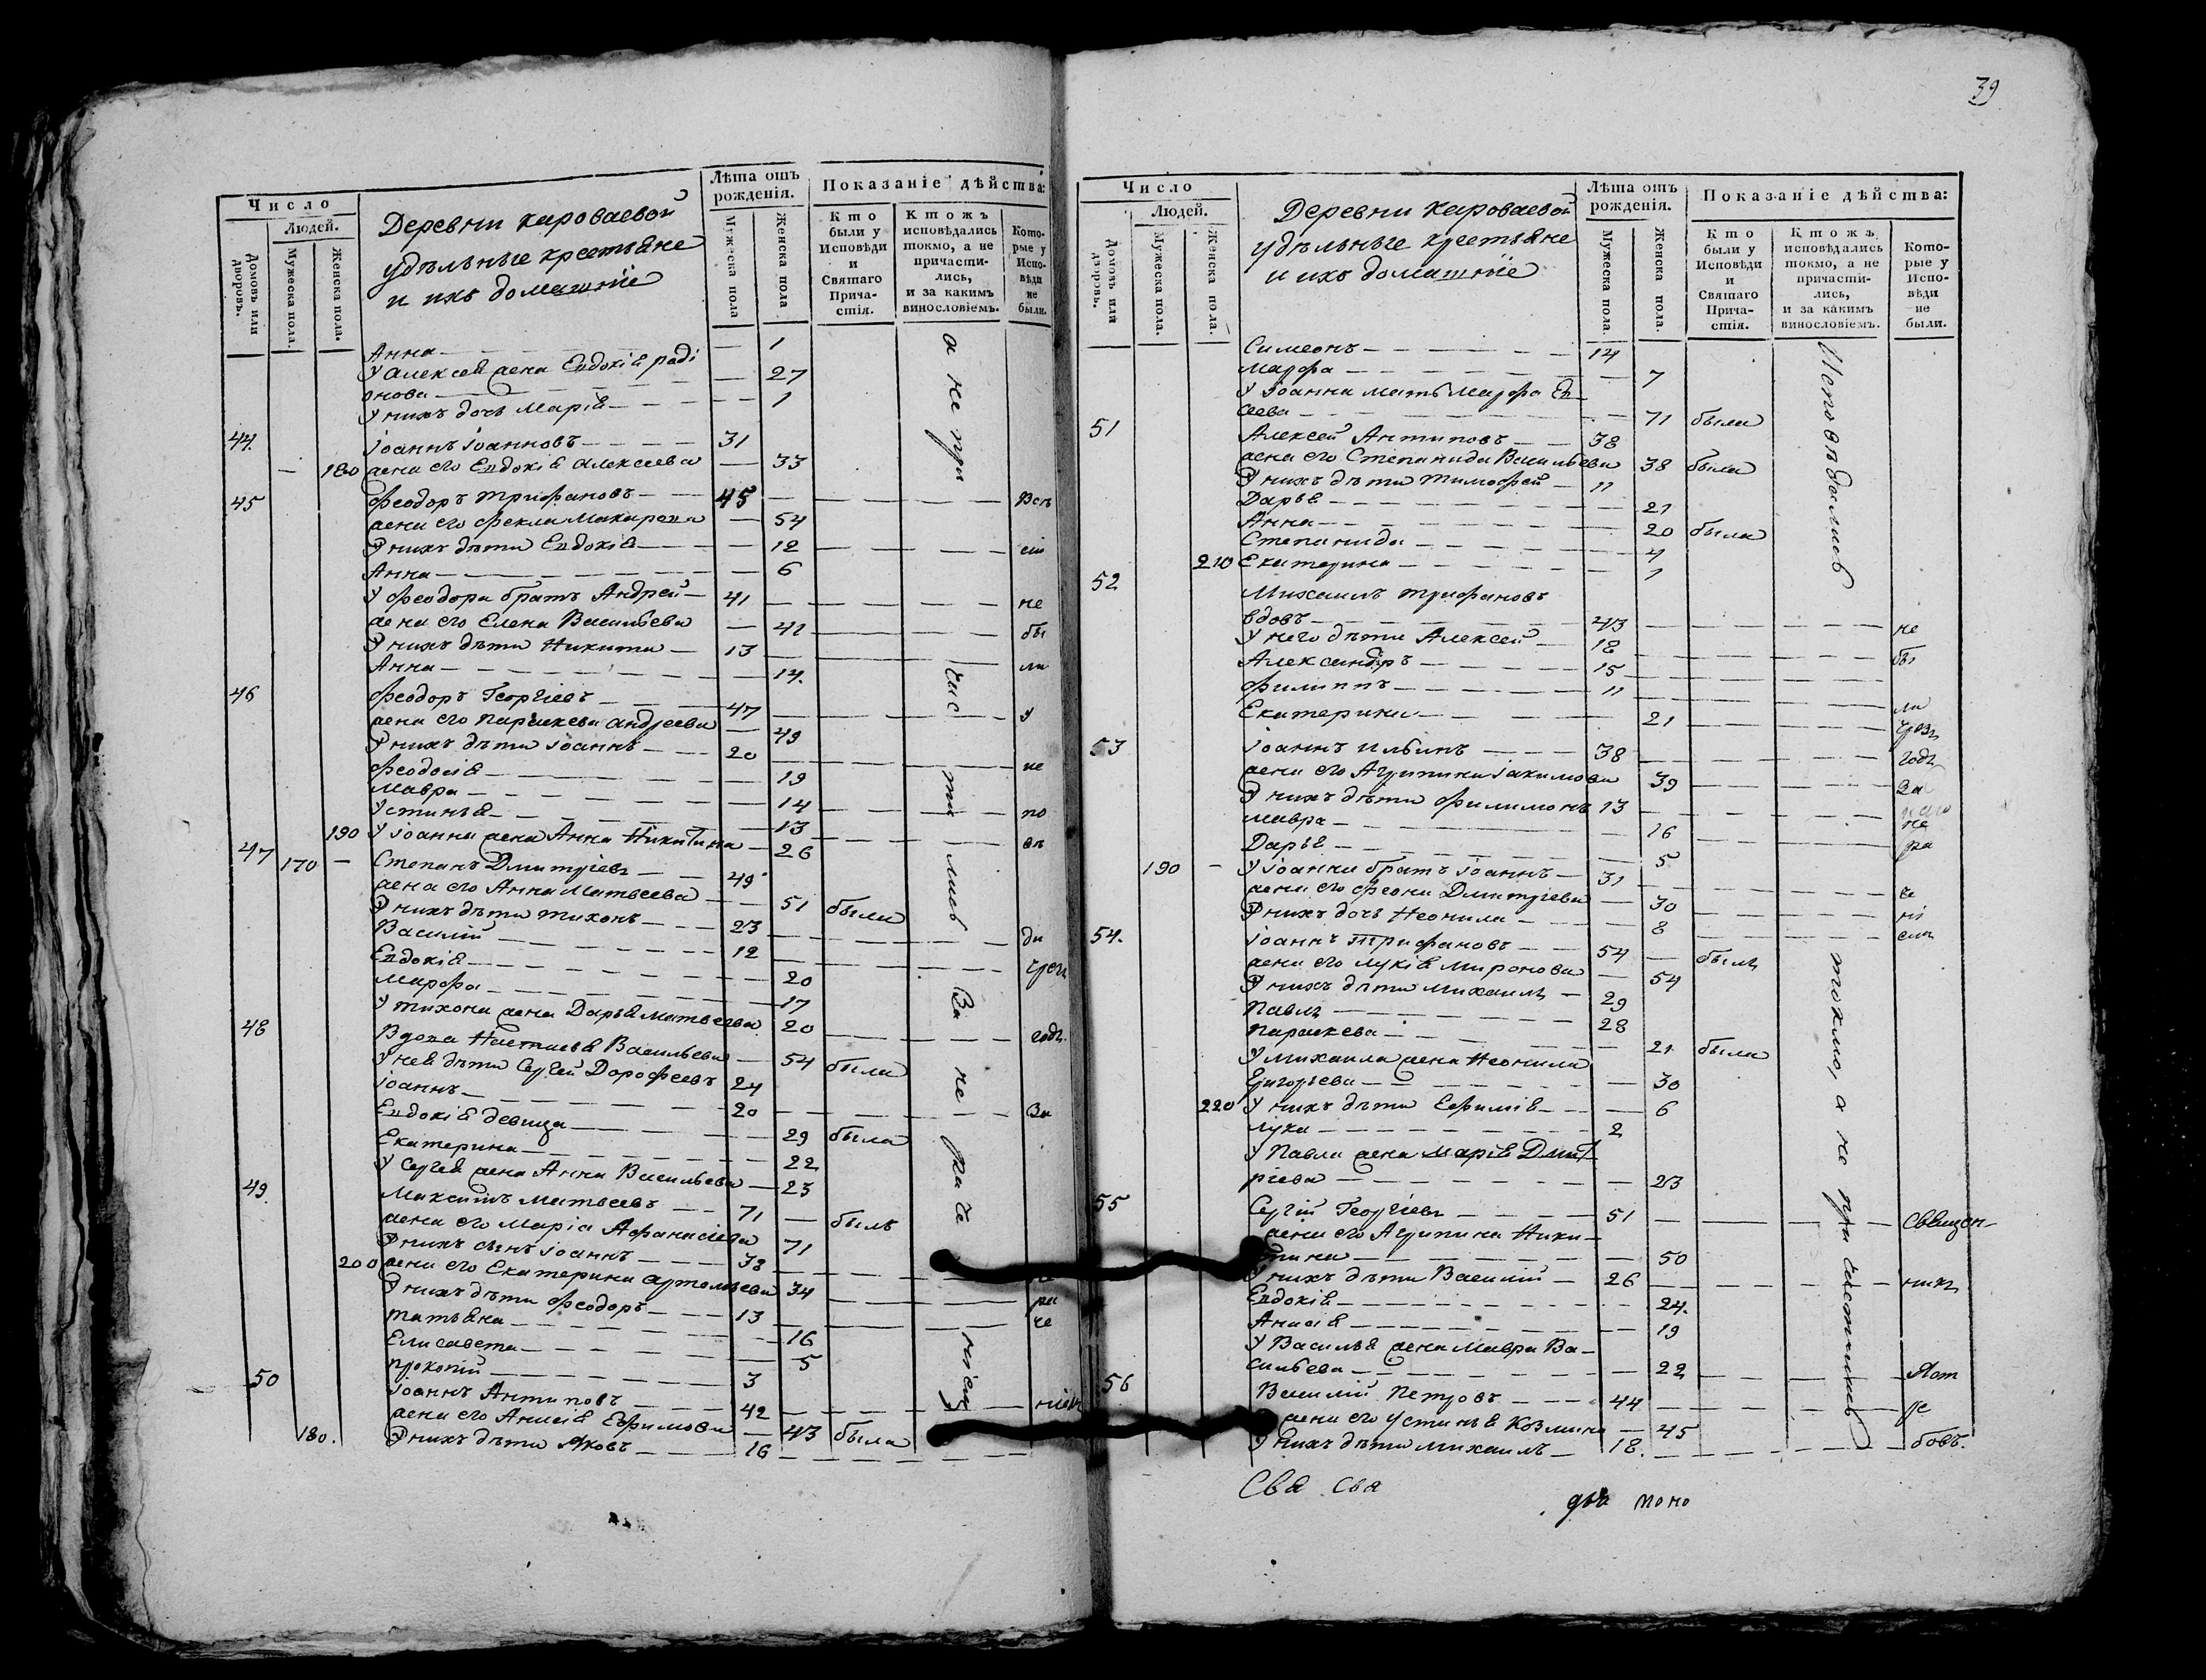 39
Число
Людей.
Домовъ или дворовъ.
Мужеска пола.
Женска пола.
Деревни кароваевой
удѣльные крестьяне
и ихъ домашнїе
Лѣта отъ
рожденїя.
Мужеска пола
Женска пола
Показанїе дѣйства:
Кто
были у
Исповѣди
и
Святаго
Прича-
стїя.
Ктожъ
исповѣдались
токмо, а не
причасти-
лись,
и за какимъ
винословїемъ.
Кото-
рые у
Испо-
вѣди
не
были.
Анна 1
У алексея жена Евдокія раді
онова 27
У нихъ дочь Марія 1
44. іоаннъ іоанновъ 31
180 жена его Евдокія алексеева 33
45 Феодоръ трифановъ 45 Всѣ
жена его Фекла Макарова 54
У нихъ дѣти Евдокія 12 сіи
Анна 6
У Феодора братъ Андрей 41 не
жена его Елена Васильева 42 бы
У нихъ дѣти Никита 13 ли
Анна 14.
46 Феодоръ Георгіевъ 47 у
жена его параскева андреева 49
У нихъ дѣти іоаннъ 20 ис
Феодосія 19
мавра 14 по
Устинья 13
190 У іоанна жена Анна Никитина 26 вѣ
47 170 Степанъ Дмитріевъ 49
жена его Анна Матвеева 51 была
У нихъ дѣти тихонъ 23 ди
Василій 12
Евдокія 20
Марфа 17
У тихона жена Дарья матвеева 20 годъ.
48 Вдова Настасья Васильева 54 была
У нея дѣти Сергей Дорофеевъ 24
іоаннъ 20 За
Евдокія девица 29 была
Екатерина 22
У Сергея жена Анна Васильева 23
49. Максимъ матвеевъ 71 былъ
жена его Маріа Афанасьева 71
У нихъ сынъ іоаннъ 38
200 жена его Екатерина артемьева 34
У нихъ дѣти Феодоръ 13 ра
татьяна 16 че
Елисавета 5
прокопій 3
50 іоаннъ Антиповъ 42 ніем
жена его Анисія Ефимова 43 была
180. У нихъ дѣти Яковъ 16
а не при час ти лись За не ра че ніем
Число
Людей.
Домовъ или дворовъ.
Мужеска пола.
Женска пола.
Деревни кароваевой
удѣльные крестьяне
и ихъ домашнїе
Лѣта отъ
рожденїя.
Мужеска пола.
Женска пола.
Показанїе дѣйства:
Кто
были у
Исповѣди
и
Святаго
Прича-
стїя.
Ктожъ
исповѣдались
токмо, а не
причасти-
лись,
и за какимъ
винословїемъ.
Кото-
рые у
Испо-
вѣди
не
были.
Симеонъ 14
Марфа 7
У іоанна мать Марфа Ев
сеева 71 была
51 Алексей Антиповъ 38
жена его Степанида Васильева 38 была
У нихъ дѣти тимофей 11
Дарья 21
Анна 20 была
Степанида 4
210 Екатерина 1
52 Михаилъ трифановъ
вдовъ 43 не
У него дѣти Алексей 18 бы
Александръ 15
Филиппъ 11 ли
Екатерина 21
53 іоаннъ ильинъ 38 годъ
жена его Агрипина іакимова 39 За
У нихъ дѣти Филимонъ 13 не
мавра 16
Дарья 5 ра
190 У іоанна братъ іоаннъ 31 че
жена его Феона Дмитріева 30 ні
У нихъ дочь Неонила 8 емъ
54. іоаннъ трифановъ 54 былъ
жена его лукія Миронова 54
У нихъ дѣти михаилъ 29
Павлъ 28
параскева 21 была
У михаила жена Неонила
Григорьева 30
220 У нихъ дѣти Ефимія 6
лука 2
У Павла жена марія Дмит
ріева 23
55 Сергій Георгіевъ 51 Священ-
жена его Агрипина Ники-
тина 50
У нихъ дѣти Василій 26 никъ
Евдокія 24.
Анисія 19
У Василья жена мавра Ва-
сильева 22 Яот
56 Василій Петровъ 44 ре
жена его Устинья Козмина 45
У нихъ дѣти михаилъ 18. бовъ.
Исповѣдались токмо, а не причастились
Свя свя
два поно